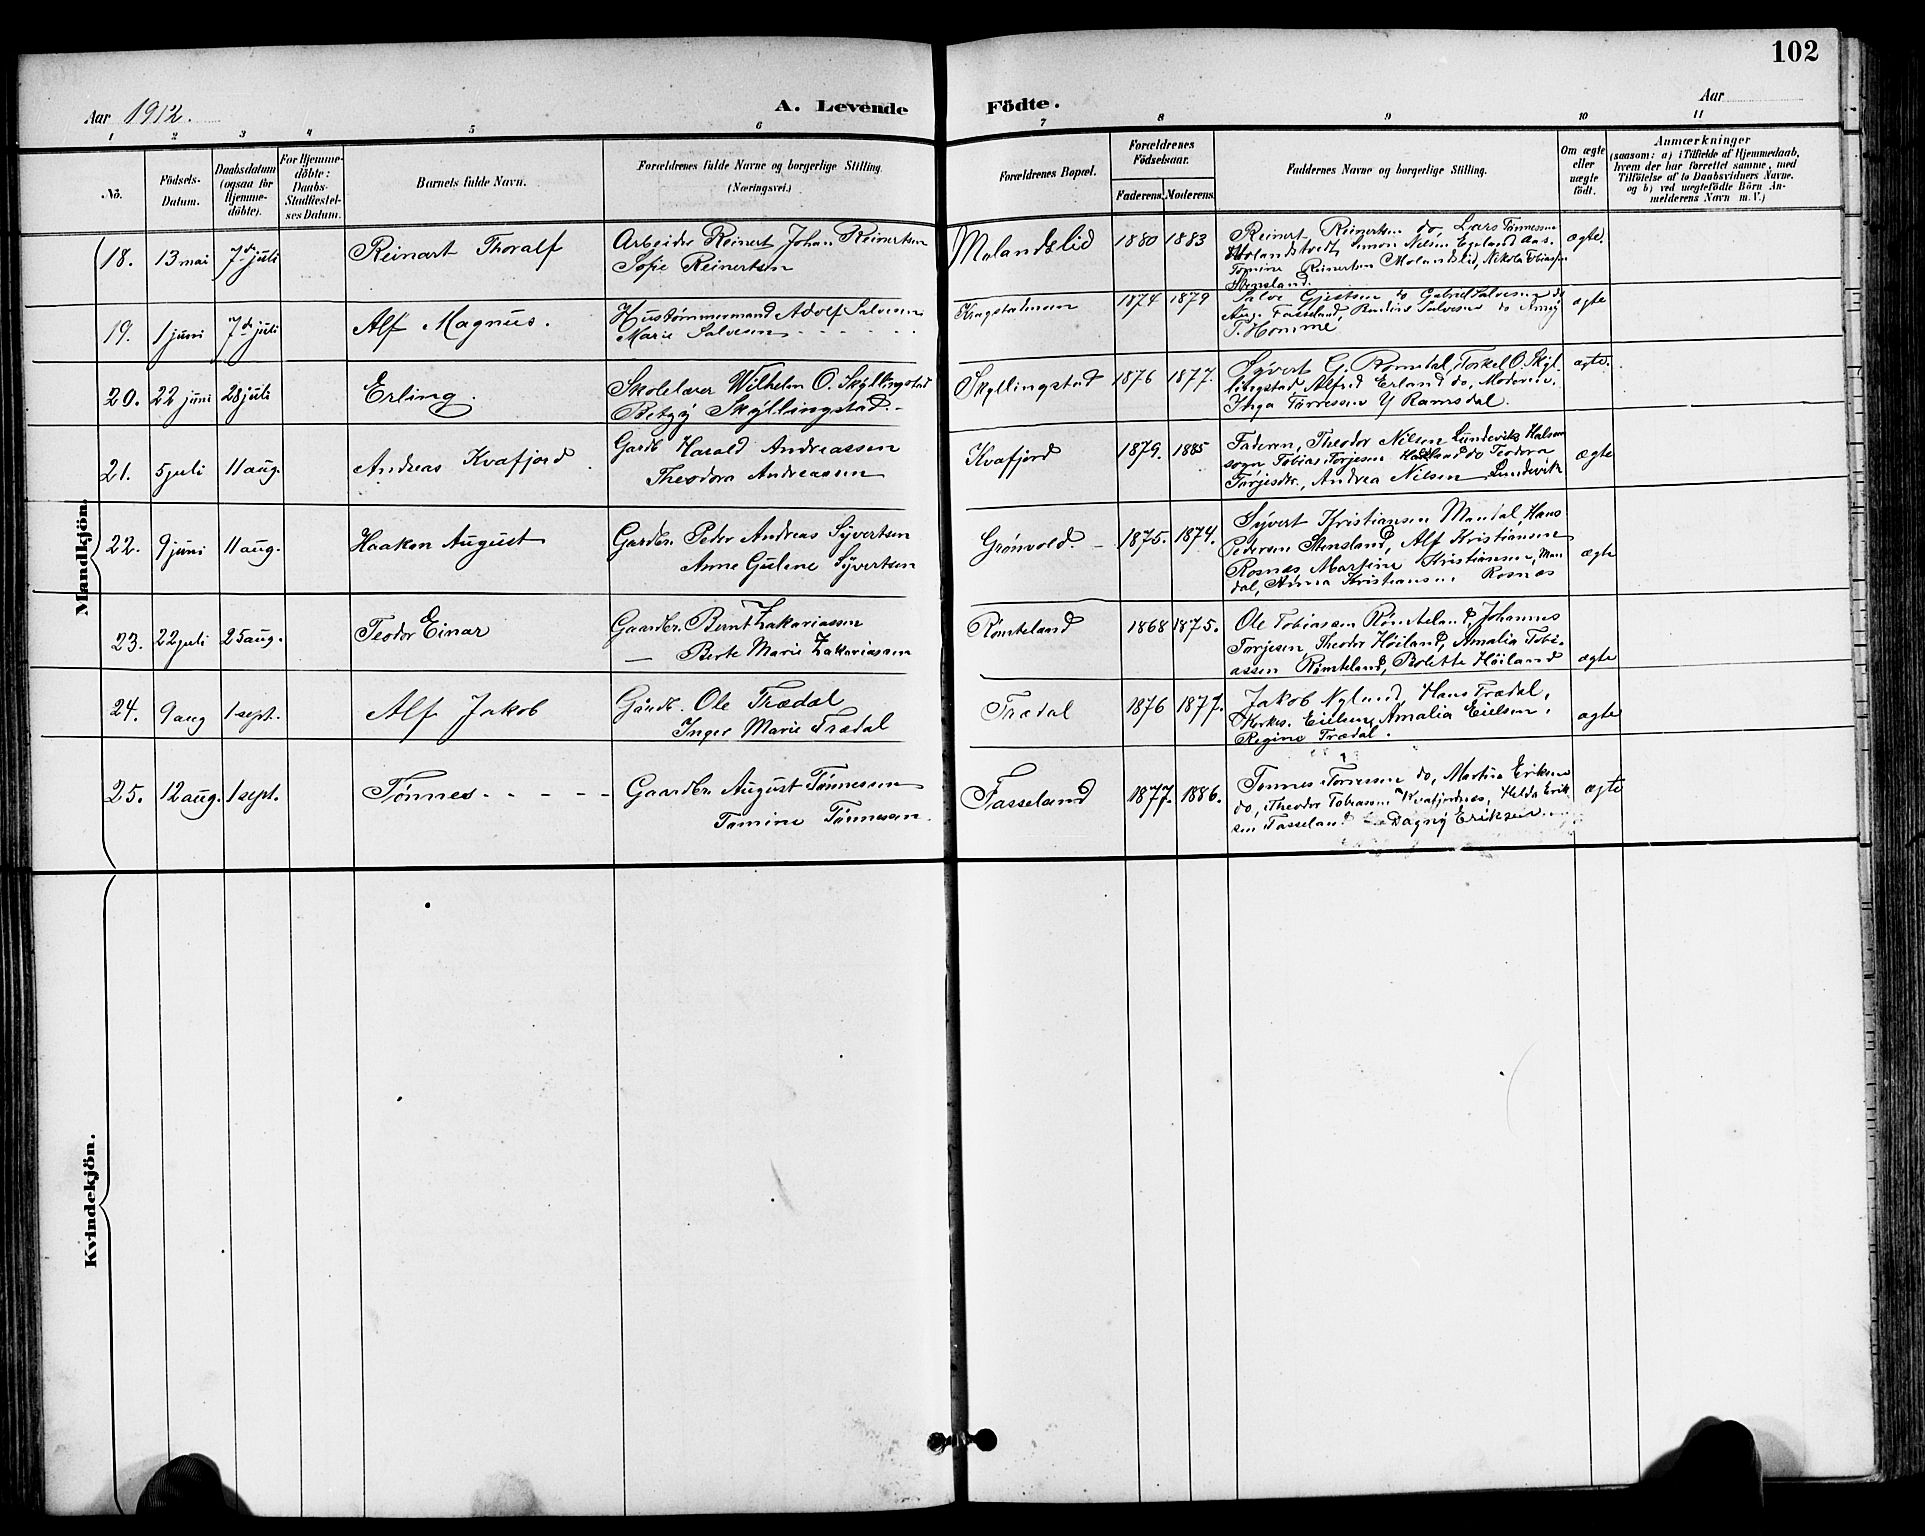 102
Aar 1912.
A. Levende Födte.
Aar
1 2 3 4 5 6 7 8 9 10 11
No.
Födsels-Datum.
Daabsdatum (ogsaa for Hjemme-döbte).
For Hjemme-döbte: Daabs-Stadfæstel-ses Datum.
Barnets fulde Navn.
Forældrenes fulde Navne og borgerlige Stilling (Næringsvei.)
Forældrenes Bopæl.
Forældrenes Födselsaar.
Faderens. Moderens.
Faddernes Navne og borgerlige Stilling.
Om ægte eller uægte födt.
Anmærkninger
(saasom: a) i Tilfælde af Hjemmedaab,
hvem der har forrettet samme, med
Tilföielse af to Daabsvidners Navne.
og b) ved uægtefödte Börn An-
melderens Navn m. V.)
Mandkjön.
18. 13 mai 7de juli Reinart Thoralf
Arbeider Reinert Johan Reinertsen
Sofie Reinertsen
Molandslid 1880 1883
Reinert Reinertsen do, Lars Tønnessen
Holandstvedt, Simon Nilsen Egeland Aas.
Tomine Reinertsen Molandslid, Nikolai Tobiassen
Stensland.
ægte.
19. 1 juni 7de juli Alf Magnus.
Hustømmermand Adolf Salvesen
Marie Salvesen
Kragstadmoen 1874 1879
Salve Gjertsen do Gabriel Salvesen do
Aug. Fasseland, Salvesen do
T. Homme
ægte
20. 22 juni 28 juli Erling.
Skolelærer Wilhelm O. Skyllingstad
Betzy Skyllingstad.
Skyllingstad 1876 1877.
Syvert G. Romdal, Torkel O. Skyl
lingstad Alfred Erland do, Moderen,
Inga Tørressen Y Ramsdal.
ægte.
21. 5 juli 11 aug. Andreas Kvafjord
Gardb. Harald Andreassen
Theodora Andreassen
Kvafjord 1879. 1885
Faderen, Theodor Nilsen Lundevik Halsen
sogn Tobias Torjesen do Teodora
Torjesdtr., Andrea Nilsen Lundevik
ægte
22. 9 juni 11 aug. Haakon August
Gardbr. Peder Andreas Syvertsen
Anne Guline Syvertsen
Grønvold. 1875. 1874.
Syvert Kristiansen Mandal, Hans
Pedersen Stensland, Alf Kristiansen
Rosnæs Martine Kristiansen, Man
dal, Anna Kristiansen Rosnæs
ægte
23. 22 juli 25 aug. Teodor Einar
Gaardbr. Bernt Zakariassen
— Berte Marie Zakariassen
Rømteland 1868 1875.
Ole Tobiassen Rømteland, Johannes
Torjesen, Theodor Høiland, Amalia Tobi
assen Rømteland, Bolette Høiland
ægte
24. 9 aug 1 sept. Alf Jakob
Gårdb. Ole Trædal
Inger Marie Trædal
Trædal 1876 1877.
Jakob Nylund, Hans Trædal,
Eielsen, Amalia Eielsen,
Regine Trædal.
ægte
25. 12 aug. 1 sept. Tønnes
Gaardbr. August Tønnesen
Tomine Tønnesen.
Fasseland 1877. 1886.
Tønnes Tørressen do, Martin Eriksen
do, Theodor Tobiassen Kvafjordnes, Helda Erik
sen Fasseland Dagny Eriksen
ægte
Kvindekjön.